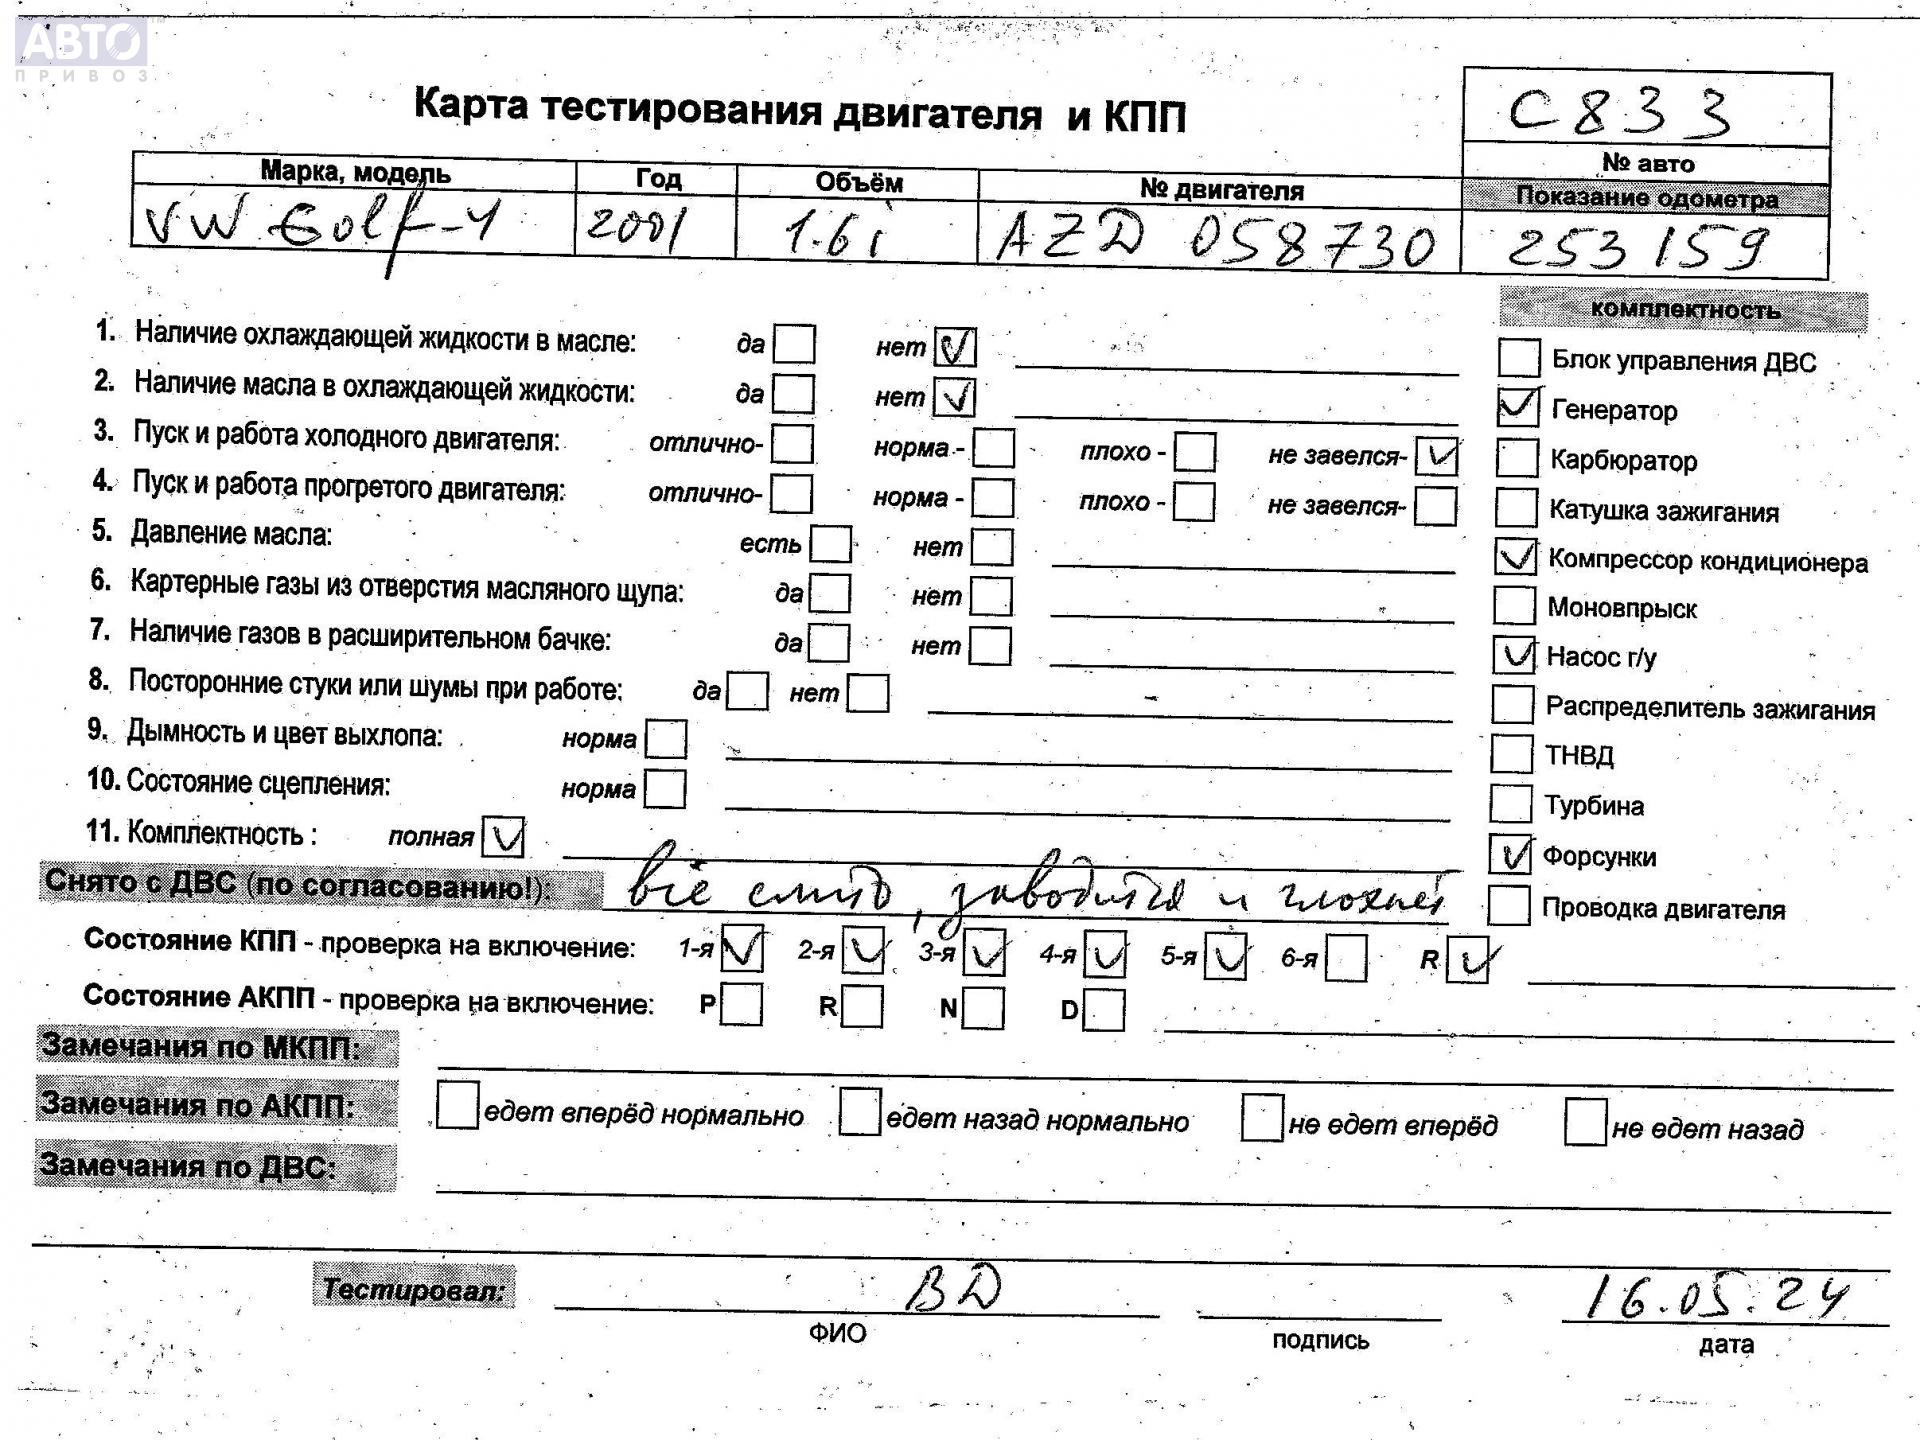 АВТО
ПРИВОЗ
Карта тестирования двигателя и КПП
С833
№ авто
Марка, модель Год Объём № двигателя Показание одометра
VW Golf-4 2001 1.6i AZD 058730 253159
комплектность
1. Наличие охлаждающей жидкости в масле: да нет ✓
Блок управления ДВС
2. Наличие масла в охлаждающей жидкости: да нет ✓
✓ Генератор
3. Пуск и работа холодного двигателя: отлично- норма - плохо - не завелся- ✓
Карбюратор
4. Пуск и работа прогретого двигателя: отлично- норма - плохо - не завелся-
Катушка зажигания
5. Давление масла: есть нет
✓ Компрессор кондиционера
6. Картерные газы из отверстия масляного щупа: да нет
Моновпрыск
7. Наличие газов в расширительном бачке: да нет
✓ Насос г/у
8. Посторонние стуки или шумы при работе: да нет
Распределитель зажигания
9. Дымность и цвет выхлопа: норма
ТНВД
10. Состояние сцепления: норма
Турбина
11. Комплектность : полная ✓
✓ Форсунки
Снято с ДВС (по согласованию!): всё слито, заводится и глохнет
Проводка двигателя
Состояние КПП - проверка на включение: 1-я ✓ 2-я ✓ 3-я ✓ 4-я ✓ 5-я ✓ 6-я R ✓
Состояние АКПП - проверка на включение: P R N D
Замечания по МКПП:
Замечания по АКПП: едет вперёд нормально едет назад нормально не едет вперёд не едет назад
Замечания по ДВС:
Тестировал: ВД 16.05.24
ФИО подпись дата